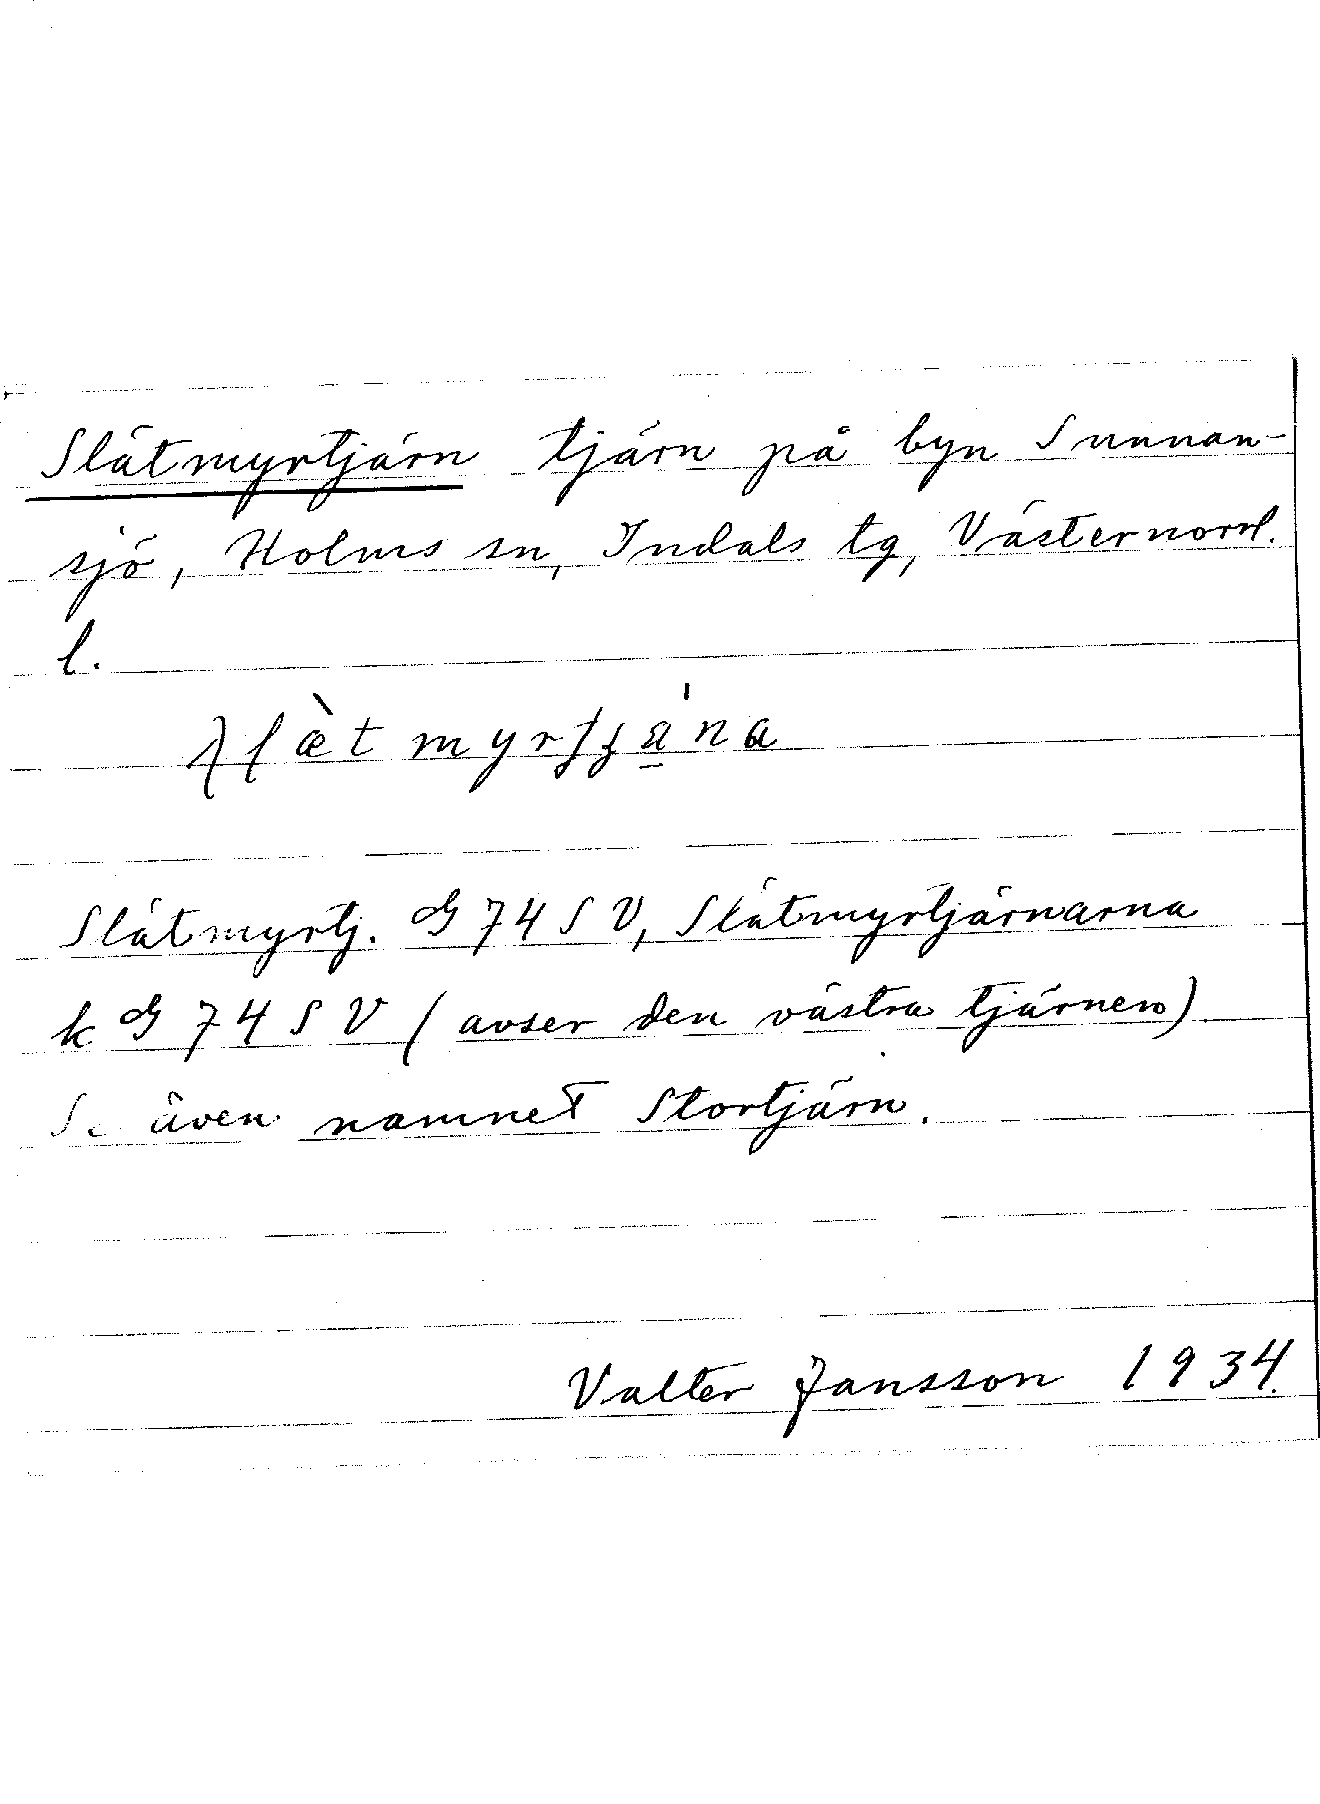 Slåtmyrtjärn tjärn på byn Sunnan-
sjö, Holms sn, Indals tg, Västernorrl.
l.
Slåtmyrtj. G 74 S V, Slåtmyrtjärnarna
k G 74 S V (avser den västra tjärnen)
Se även namnet Stortjärn.
Valter Jansson 1934.